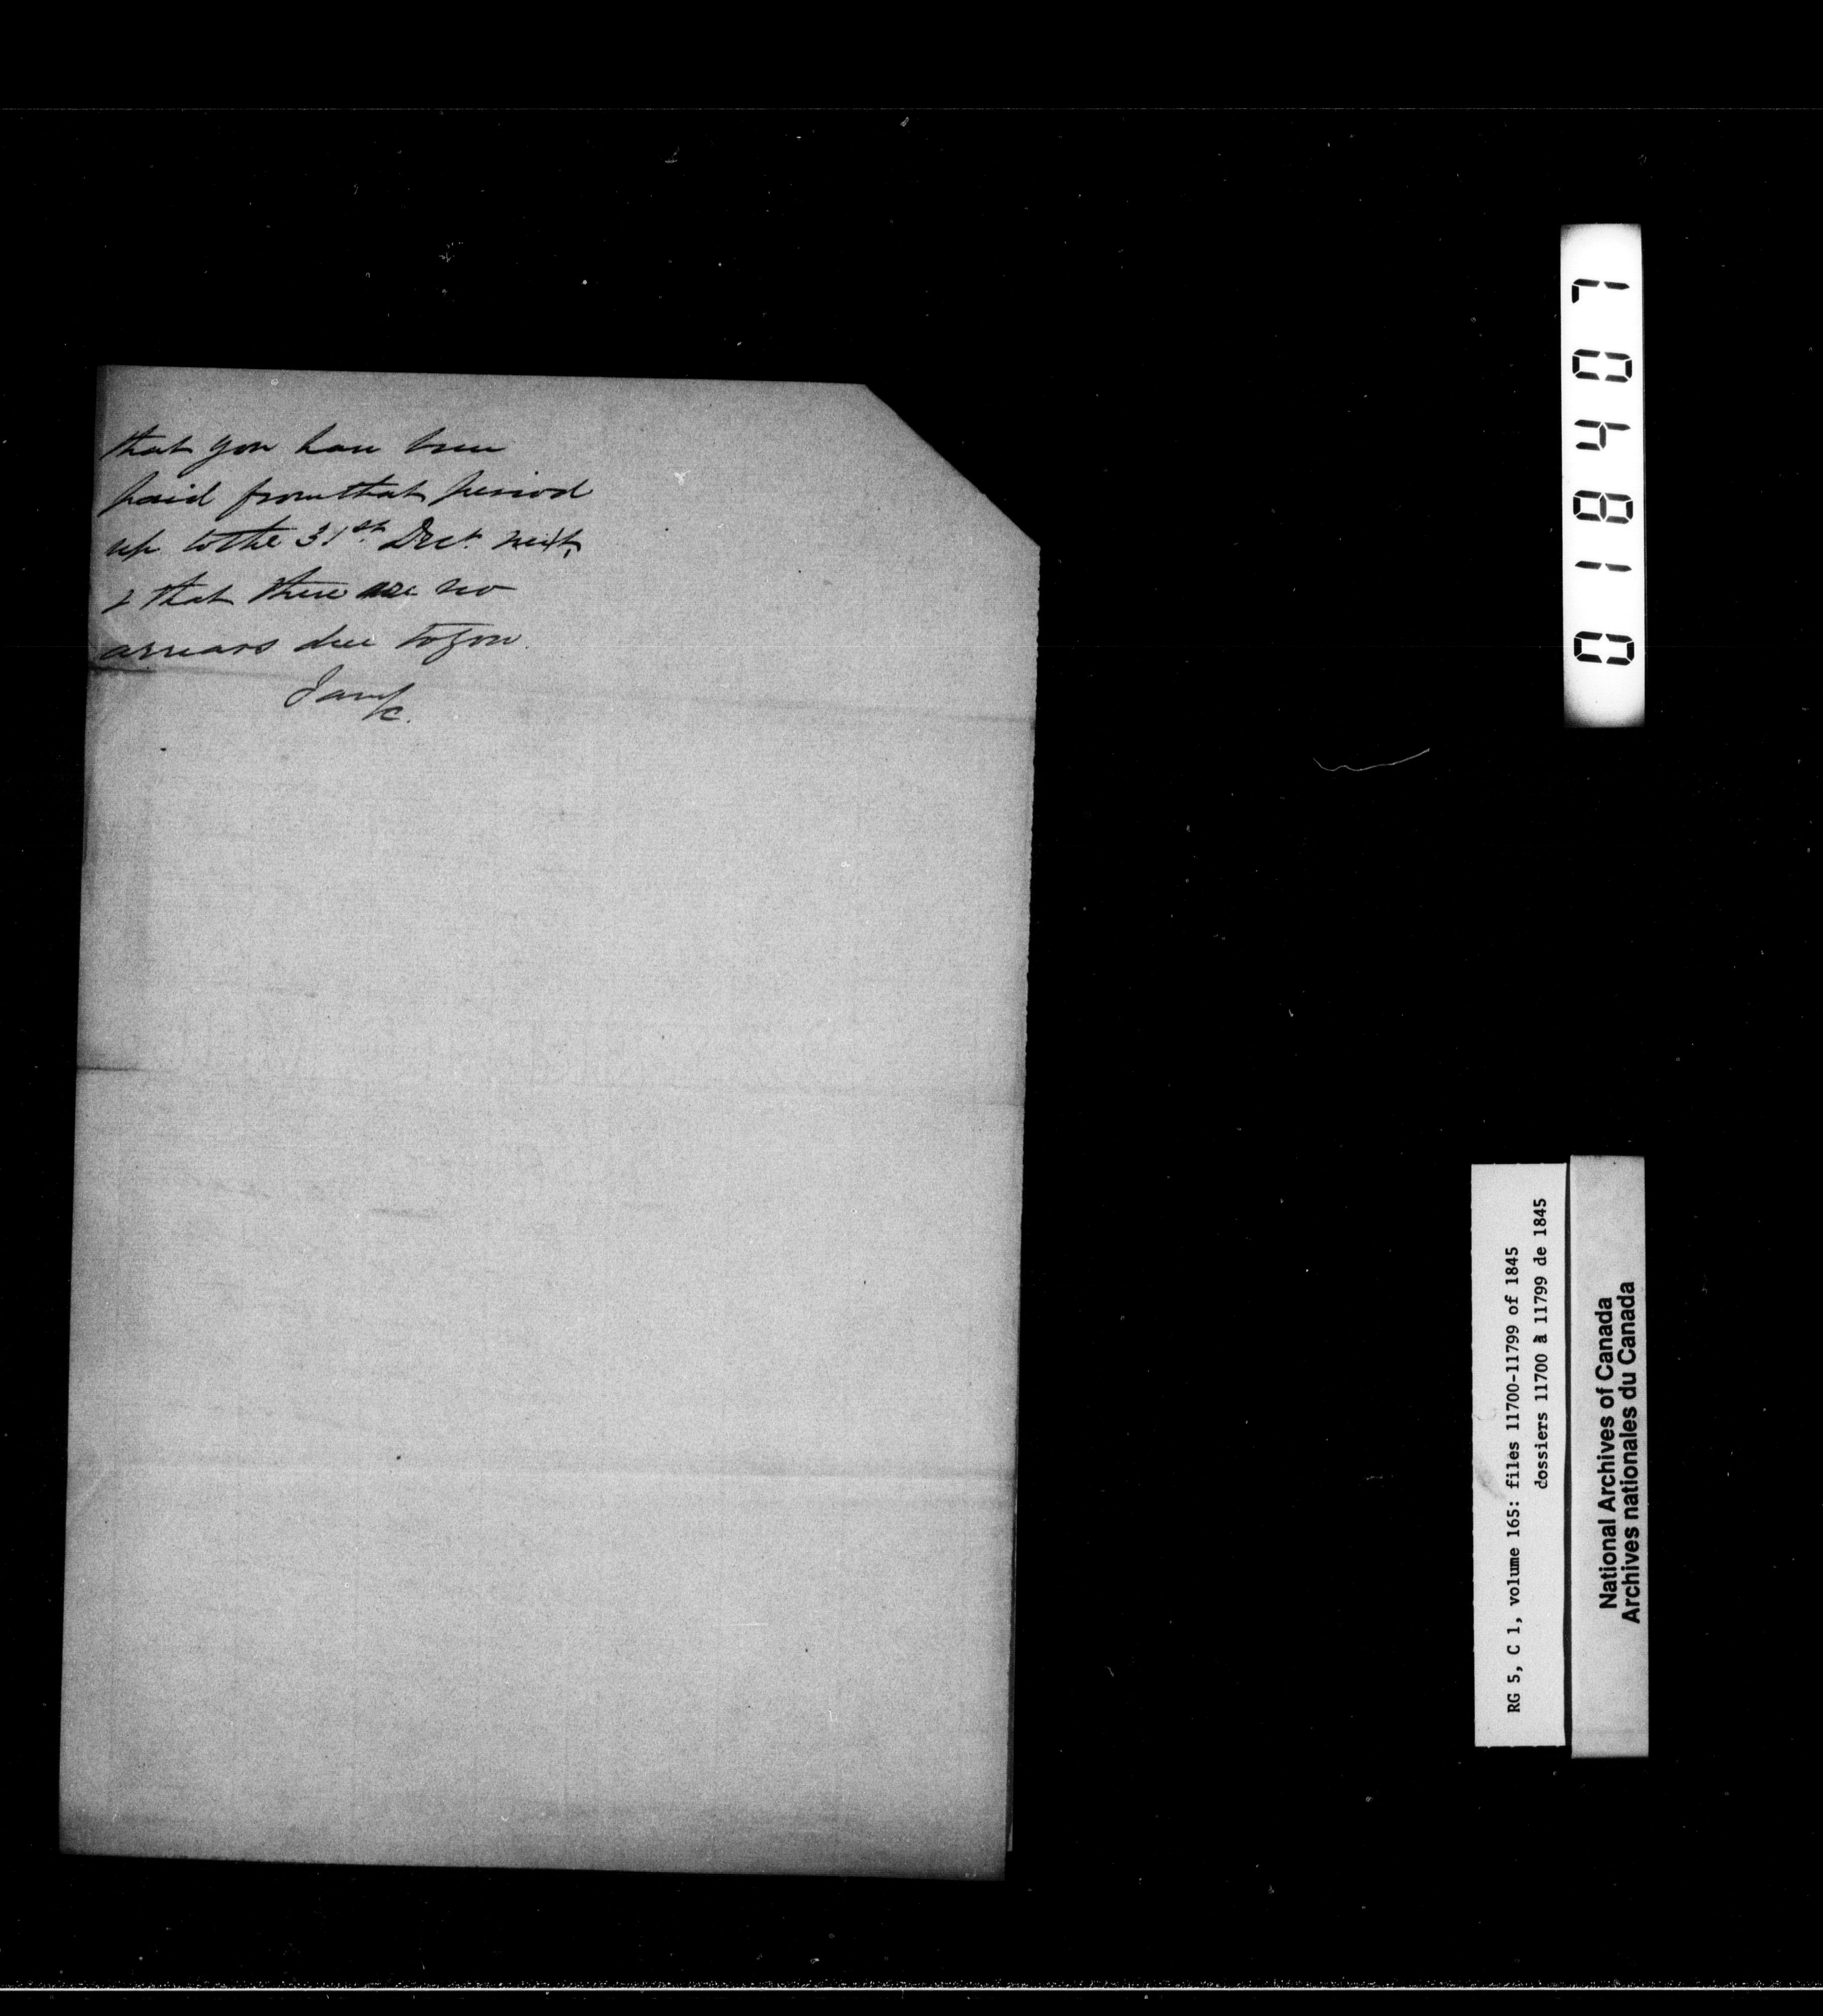 that you have been
paid from that period
up to the 31st Decr. next,
& that there are no
arrears due to you.
I am
&c.
018407
RG 5, C 1, volume 165: files 11700-11799 of 1845
dossiers 11700 à 11799 de 1845
National Archives of Canada
Archives nationales du Canada